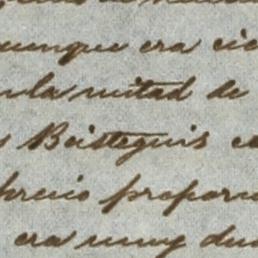 aunque era cie
la mitad de
Beistegui s
precio propor
era muy du